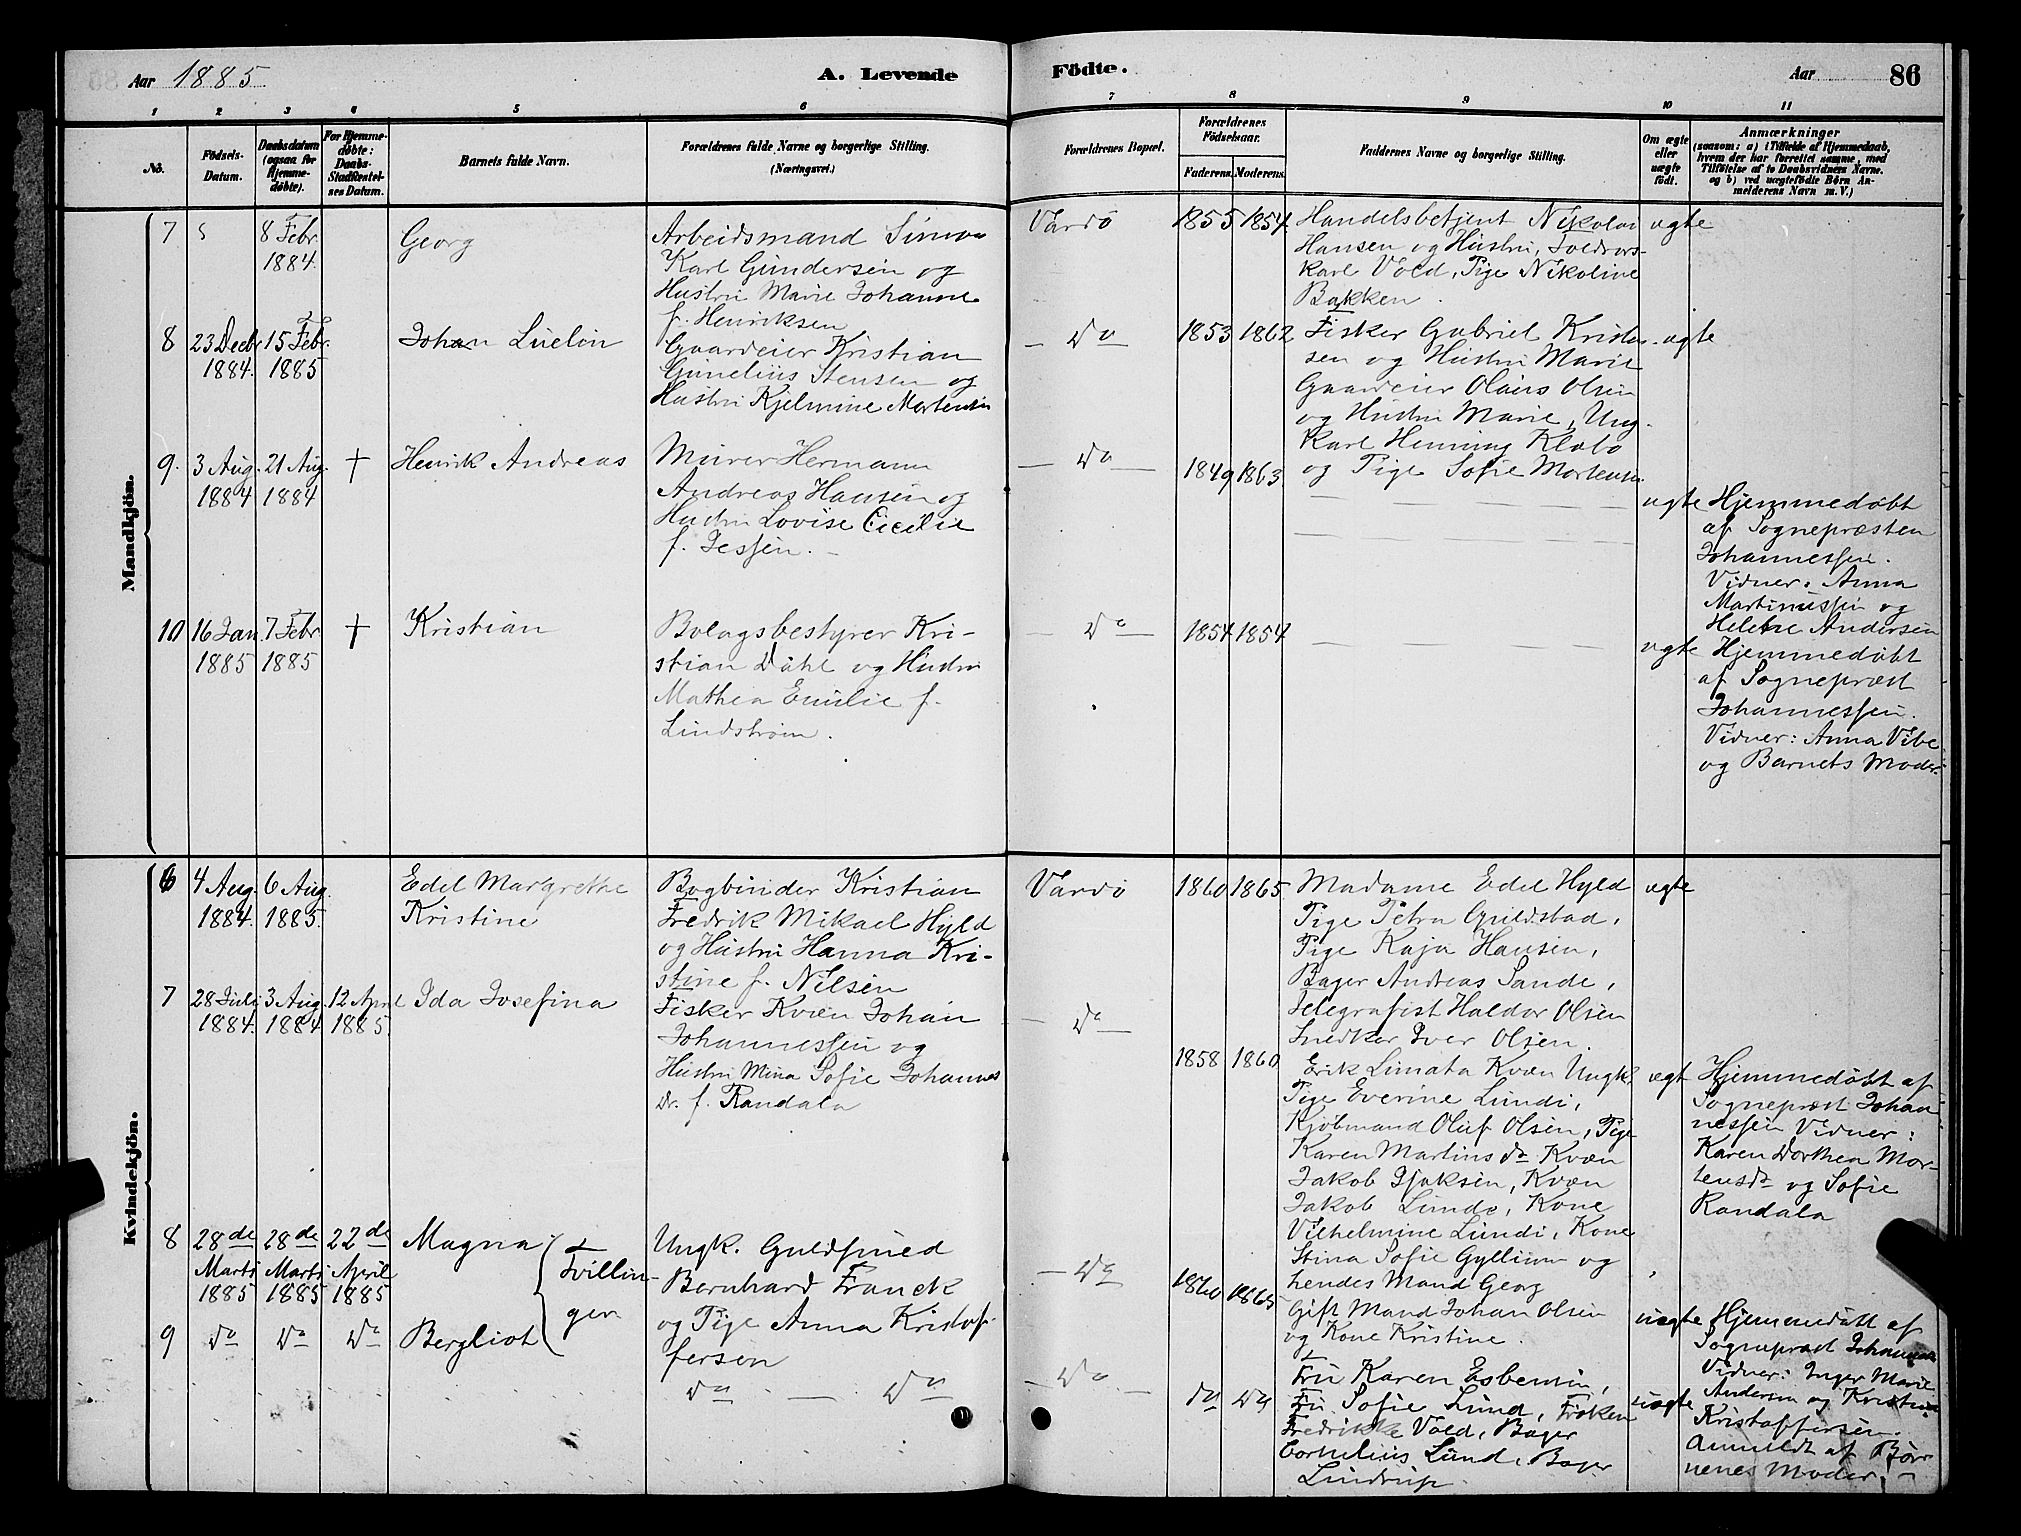 Aar 1885
A. Levende
Födte.
Aar
86
1 2 3 4 5 6 7 8 9 10 11
No.
Födsels-Datum.
Daabsdatum (ogsaa for Hjemme-döbte).
For Hjemme-döbte: Daabs-Stadfæstel-ses Datum.
Barnets fulde Navn.
Forældrenes fulde Navne og borgerlige Stilling.
(Næringsvei.)
Forældrenes Bopæl.
Forældrenes Födselsaar.
Faderens. Moderens.
Faddernes Navne og borgerlige Stilling.
Om ægte eller uægte födt.
Anmærkninger
(saasom: a) i Tilfælde af Hjemmedaab,
hvem der har forrettet samme, med
Tilföielse af to Daabsvidners Navne.
og b) ved uægtefödte Börn An-
melderens Navn m. V.)
Mandkjön.
7
8 Febr.
1884.
Georg
Arbeidsmand Simon
Karl Gundersen og
Hustru Marie Johanne
f. Henriksen
Vardö
1855 1854
Handelsbetjent Nikolai
Hansen og Hustru,
karl Vold, Pige Nikoline
Bakken.
ægte
8
23 Decbr.
1884.
15 Febr.
1885
Johan Luelin
Gaardeier Kristian
Gunelius Stensen og
Hustru Kjelmine Mortensen
Do
1853 1862
Fisker Gabriel Kristen-
sen og Hustru Marie
Gaardeier Olaus Olsen
og Hustru Marie, Ung-
karl Henning Klæbo
og Pige Sofie Mortensen
ægte
9.
3 Aug.
1884
21 Aug.
1884
†
Henrik Andreas
Murer Hermann
Andreas Hansen og
Hustru Lovise Cicilie
f. Jessen.
Do
1849 1863
ægte
Hjemmedöbt
af Sognepræsten
Johannessen.
Vidner: Anna
Martinussen og
Helene Andersen
10
16 Jan.
1885
7 Febr
1885
†
Kristian
Bolagsbestyrer Kri-
stian Dahl og Hustru
Mathea Emilie f.
Lindstrøm.
Do
1854 1854
ægte
Hjemmedöbt
af Sognepræst
Johannessen.
Vidner: Anna Vibe
og Barnets Moder.
Kvindekjön.
6
4 Aug.
1884.
6 Aug.
1885.
Edel Margrethe
Kristine
Bogbinder Kristian
Fredrik Mikael Hyld
og Hustru Hanna Kri-
stine f. Nilsen
Vardö
1860 1865
Madame Edel Hyld
Pige Petra Guldstad,
Pige Kaja Hansen,
Bager Andreas Sande,
Telegrafist Haldor Olsen
Snedker Iver Olsen.
ægte
7
28 Juli
1884.
3 Aug.
1884
12 April
1885.
Ida Josefina
Fisker Kvæn Johan
Johannessen og
Hustru Mina Sofie Johannes
Dr. f. Randala
Do
1858 1860
Erik Limata Kvæn Ungk.
Pige Everine Lundi,
Kjöbmand Oluf Olsen, Pige
Karen Martins Dr Kvæn
Jakob Isaksen, Kvæn
Jakob Lunde, Kone
Vilhelmine Lundi, Kone
Stina Sofie Gyllium og
hendes Mand Georg
ægt
Hjemmedöbt af
Sognepræst Johan
nessen Vidner:
Karen Dorthea Mor-
tensdr og Sofie
Randala
8
28de
Marts
1885
28de
Marts
1885
22de
April
1885
Magna
Tvillin-
ger
Ungk. Guldsmed
Bernhard Franck
og Pige Anna Kristof-
fersen
Do
1860 1865
Gift Mand Johan Olsen
og Kone Kristine.
uægte
Hjemmedöbt af
Sognepræst Johannessen
Vidner: Inger Marie
Andersen og Kristine
Kristoffersen.
Anmeldt af Bör-
nenes Moder.
9
Do Do Do
Bergliot
Do Do
Do
Do Do
Fru Karen Esbensen,
Fru Sofie Lund, Fröken
Fredrikke Vold, Bager
Cornelius Lund, Bager
Lindrup.
uægte